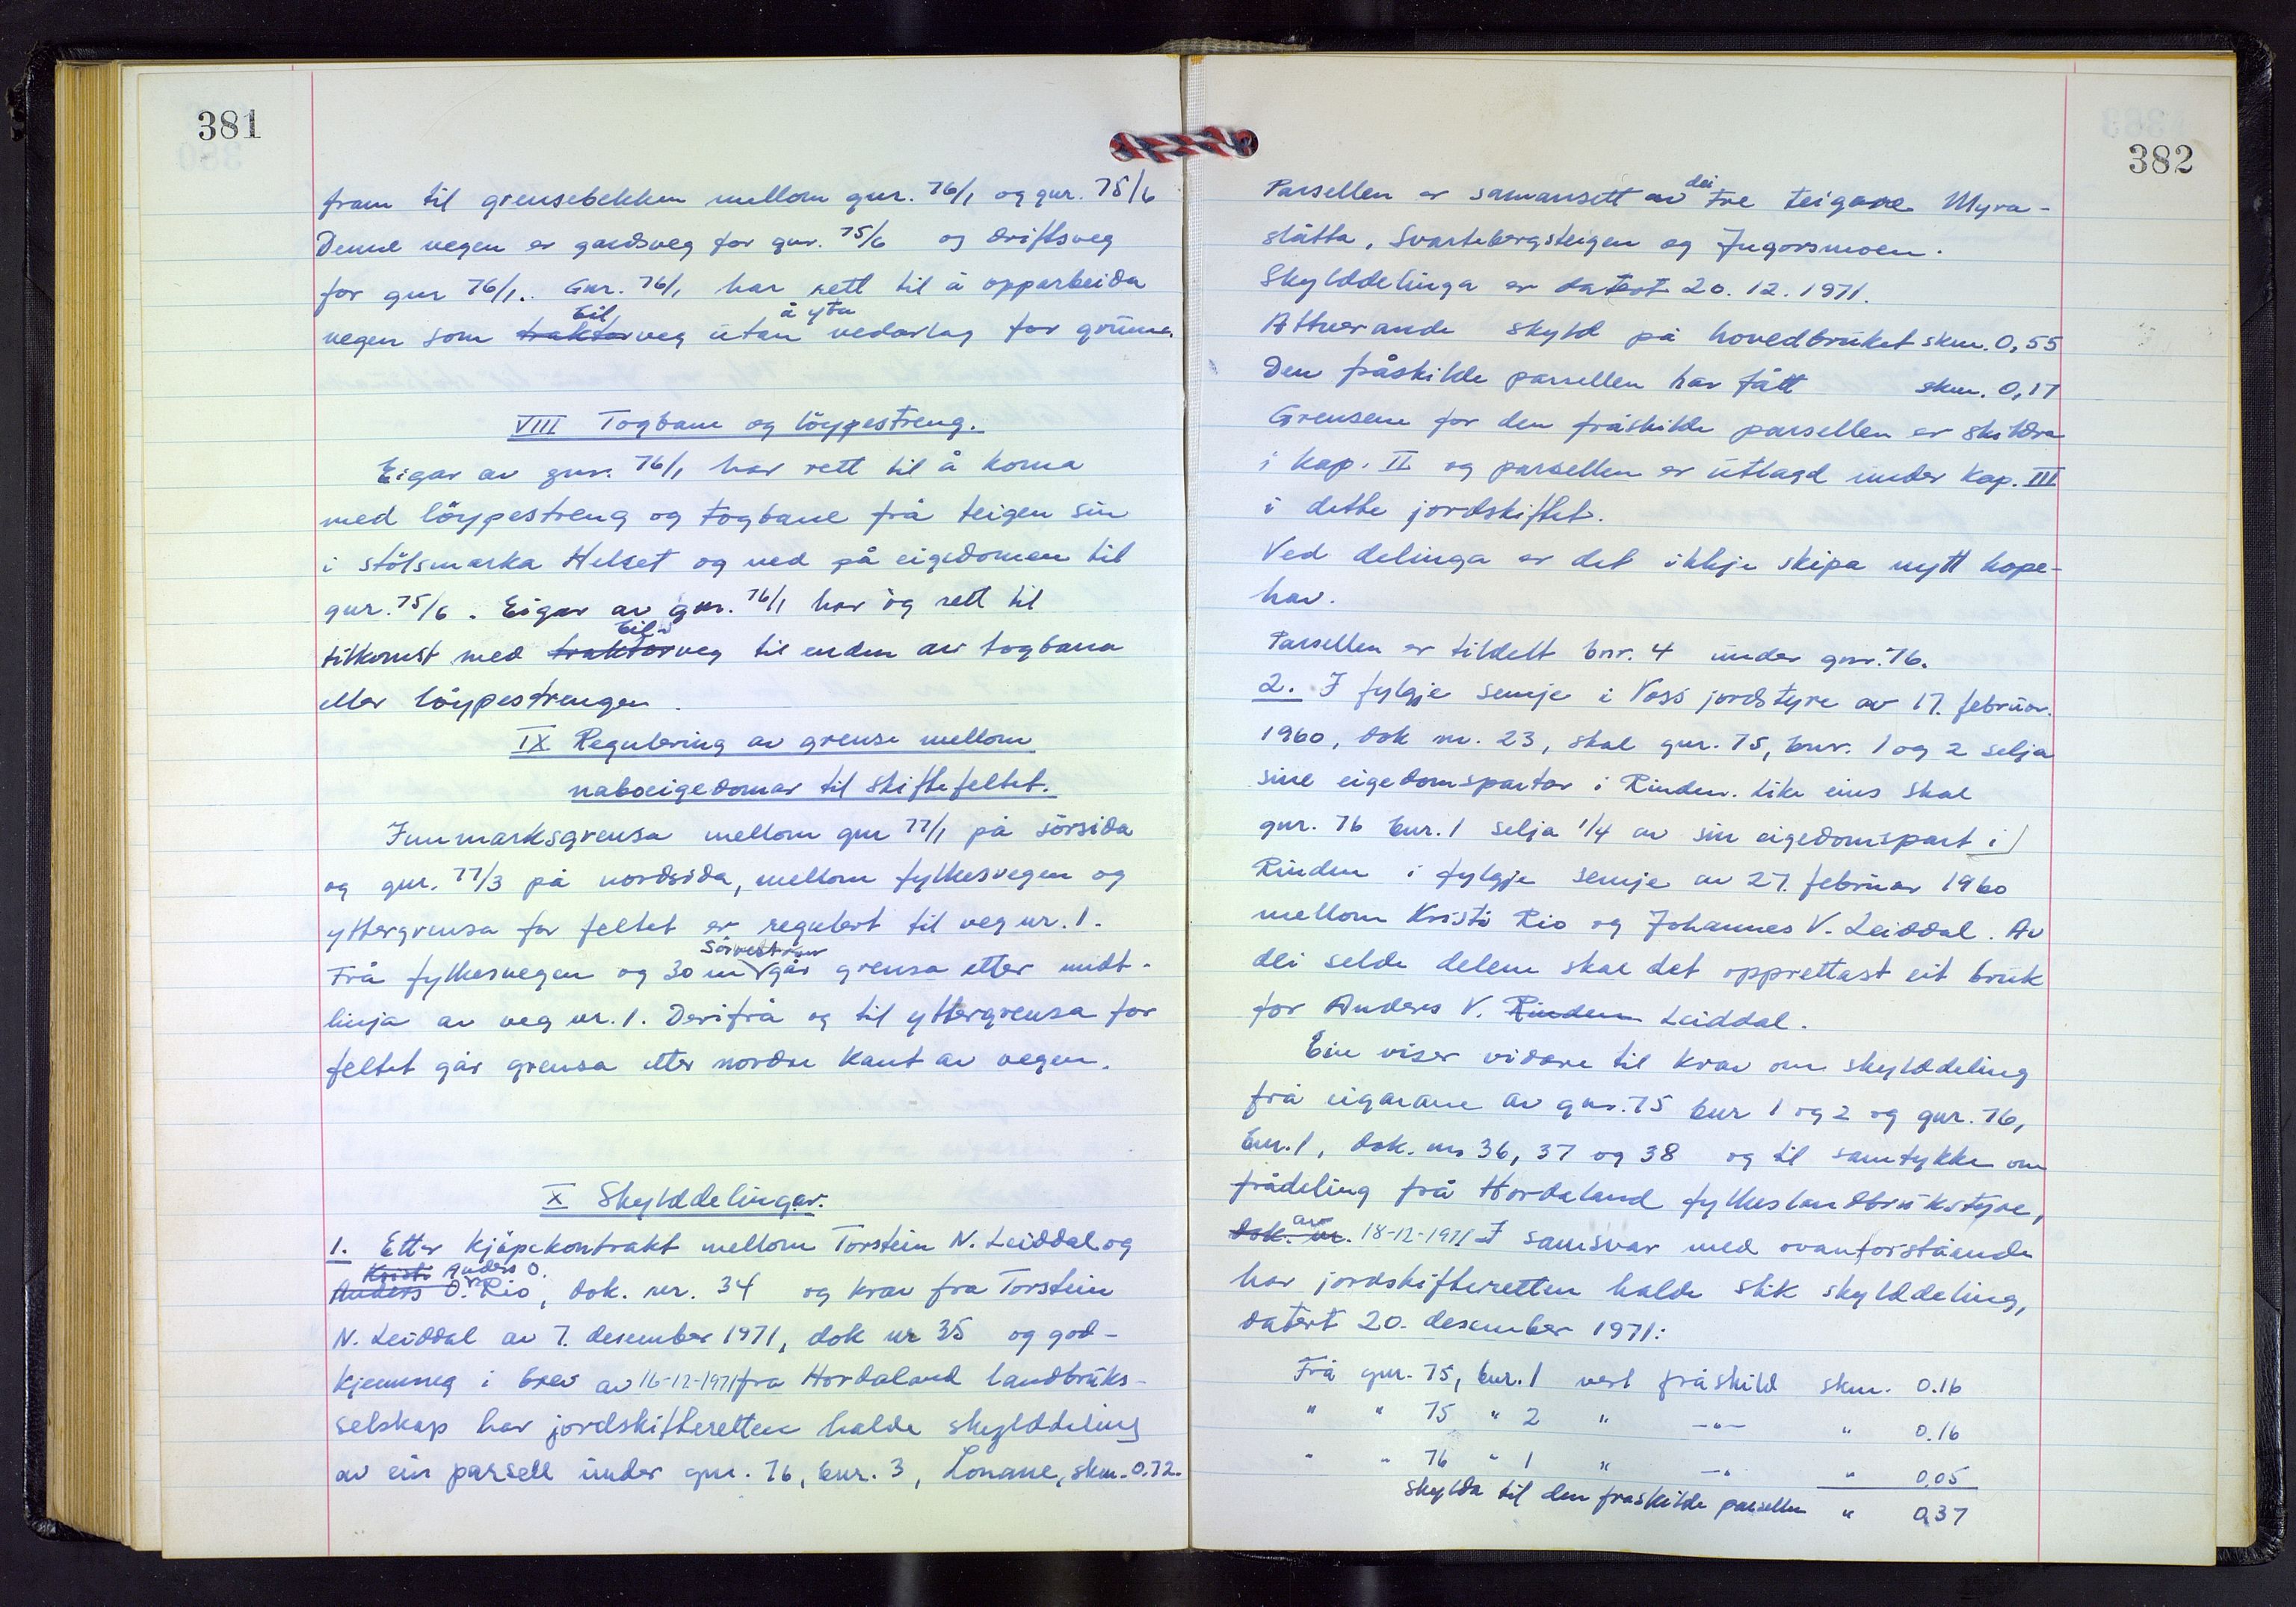 381
fram til grensebekken mellom gnr. 76/1 og gnr. 75/6
Denne vegen er gardsveg for gnr. 75/6 og driftsveg
for gnr 76/1. Gnr. 76/1 har rett til å opparbeida
bil å yta
vegen som traktorveg utan vedarlag for grunn.
VIII Togbane og löypestreng.
Eigar av gnr. 76/1 har rett til å koma
med löypestreng og togbane frå teigen sin
i stölsmarka Helset og ned på eigedomen til
gnr. 75/6. Eigar av gnr. 76/1 har og rett til
bil-
tilkomst med traktorveg til enden av togbana
eller löypestrengen.
IX Regulering av grense mellom
naboeigedomar til skiftefeltet.
Innmarksgrensa mellom gnr 77/1 på sörsida
og gnr. 77/3 på nordsida, mellom fylkesvegen og
yttergrensa for feltet er regulert til veg nr. 1.
Sörvestover
Frå fylkesvegen og 30 m går grensa etter midt-
linja av veg nr. 1. Derifrå og til yttergrensa for
feltet går grensa etter nordre kant av vegen.
X Skylddelingar.
1. Etter kjöpekontrakt mellom Torstein N. Leiddal og
Kristi Anders O.
Anders O. Rio, dok. nr. 34 og krav fra Torstein
N. Leiddal av 7. desember 1971, dok nr 35 og god-
kjenning i brev av 16-12-1971 fra Hordaland landbruks-
selskap har jordskifteretten halde skylddeling
av ein parsell under gnr. 76, bnr. 3, Lonane, skm. 0.72.
382
dei
Parsellen er samansett av tre teigane Myra-
slåtta, Svartebergsteigen og Jugorsmoen.
Skylddelinga er datert 20.12.1971.
Attverande skyld på hovedbruket skm. 0,55
Den fråskilde parsellen har fått skm. 0,17
Grensene for den fråskilde parsellen er skildra
i kap. II og parsellen er utlagd under kap. III
i dette jordskiftet.
Ved delinga er det ikkje skipa nytt hope-
hav.
Parsellen er tildelt bnr. 4 under gnr. 76.
2. I fylgje semje i Voss jordstyre av 17. februar
1960, dok nr. 23, skal gnr. 75, bnr. 1 og 2 selja
sine eigedomspartar i Rinden. Like eins skal
gnr. 76 bnr. 1 selja 1/4 av sin eigedomspart i
Rinden i fylgje semje av 27. februar 1960
mellom Kristi Rio og Johannes V. Leiddal. Av
dei selde delene skal det opprettast eit bruk
for Anders V. Rinden Leiddal.
Ein viser vidare til krav om skylddeling
frå eigarane av gnr. 75 bnr 1 og 2 og gnr. 76,
bnr. 1, dok. nr 36, 37 og 38 og til samtykke om
frådeling frå Hordaland fylkeslandbrukstyre,
av
dok. nr. 18-12-1971 I samsvar med ovanforståande
har jordskifteretten halde slik skylddeling,
datert 20. desember 1971:
Frå gnr. 75, bnr. 1 vert fråskild skm. 0.16
" " 75 " 2 " -"- " 0.16
" " 76 " 1 " -"- " 0.05
Skylda til den fraskilde parsellen " 0,37